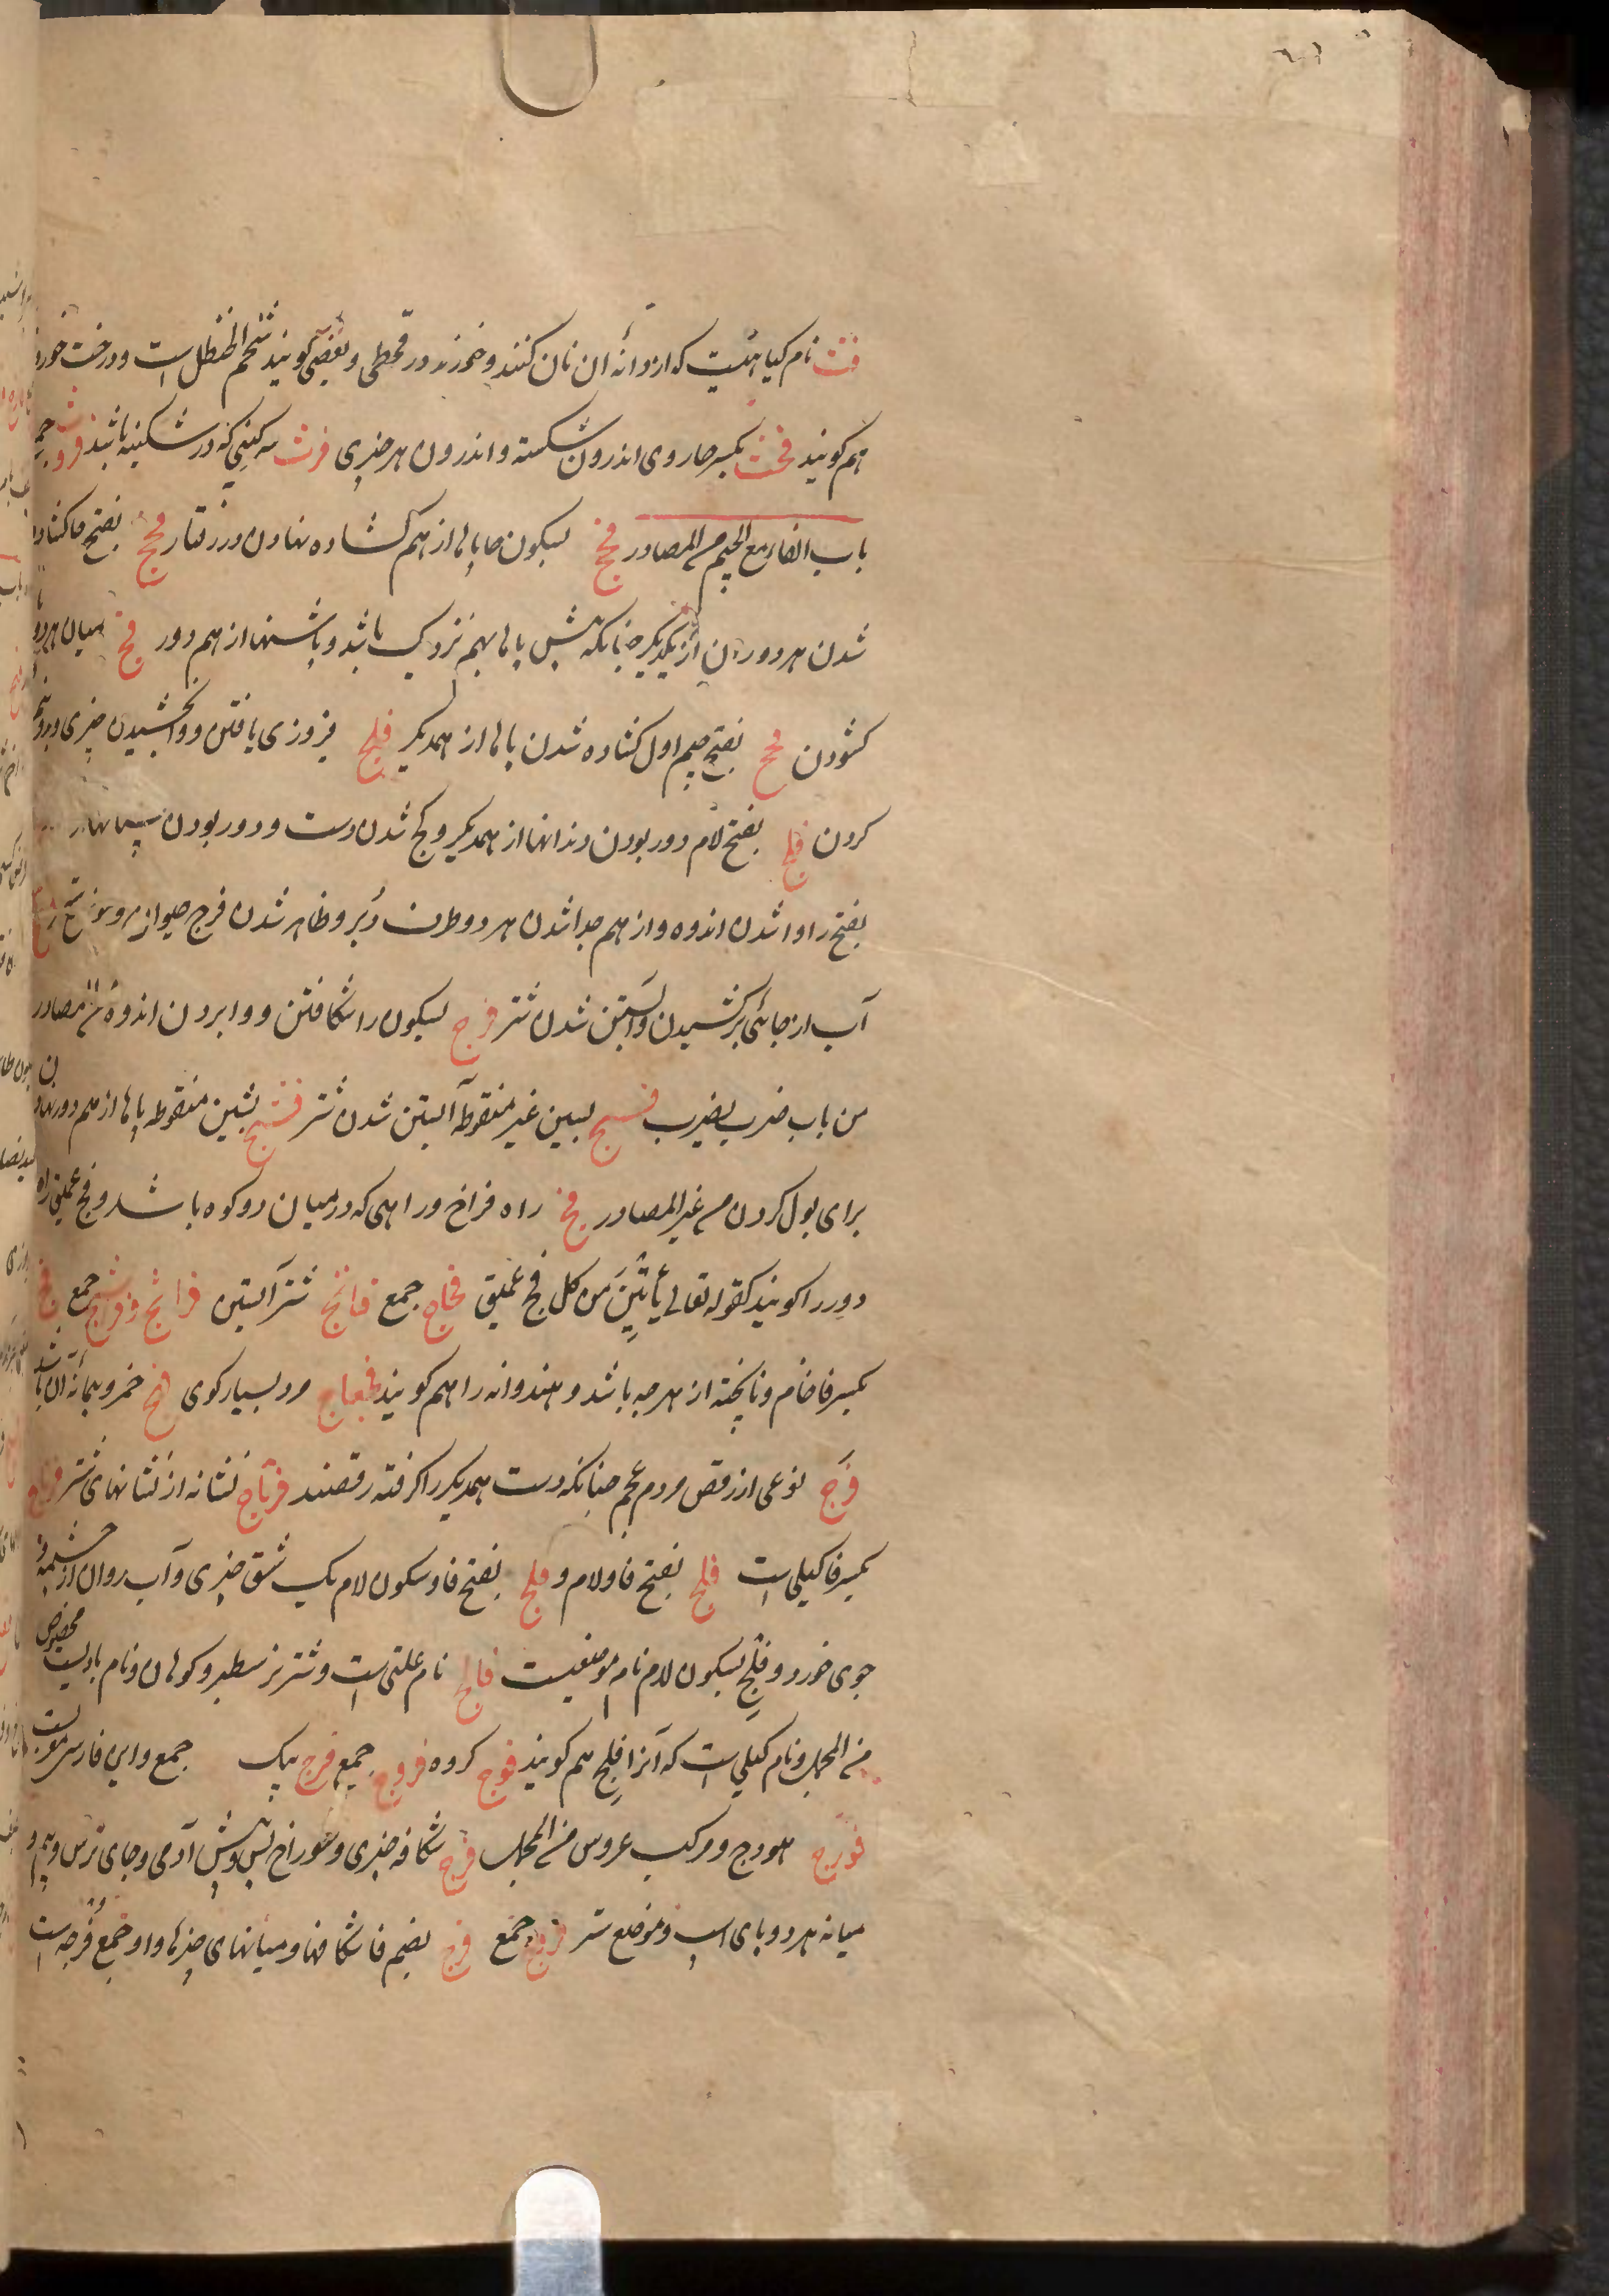 فث نام کیاهیست که از دانهٔ ان نان کنند و خورند در قحطی و بعضی کویند شحم الحنظل است و درخت خورد
هم کویند فحث بکسر حا روی اندرون شکنبه و اندرون هر چیزی فرث سرکینی که در شکنبه باشد فروث جمع
باب الفاء مع الجیم من المصادر فحج بسکون حا پایها از هم کشاده نهادن در رفتار فحج بفتح حا کشاده
شدن هر دو ران از یکدیکر چنانکه پیش پایها بهم نزدیک باشد و پاشنها از هم دور فج میان هر دو
کشودن فجج بفتح جیم اول کشاده شدن پایها از همدیکر فلج فیروزی یافتن و وابخشیدن چیزی و بدو نیم
کردن فلج بفتح لام دور بودن دندانها از همدیکر و کج شدن دست و دور بودن
بفتح را وا شدن اندوه و از هم جدا شدن هر دو طرف دبر و ظاهر شدن فرج
آب از جائی برکشیدن و آبستن شدن شتر فرج بسکون را شکافتن و وا بردن اندوه من المصادر
من باب ضرب یضرب فسج بسین غیر منقوطه آبستن شدن شتر فشج بشین منقوطه پایها از هم دور نهادن
برای بول کردن من غیر المصادر فج راه فراخ و راهی که در میان دو کوه باشد و فج عمیق راه
دور را کویند کقوله تعالی یأتین من کل فج عمیق فجاج جمع فاثج شتر آبستن جمع فج
بکسر فا خام و ناپخته از هر چه باشد و هندوانه را هم کویند فجفاج مرد بسیار کوی خمر و پیمانه آن باشد
فنزج نوعی از رقص مردم عجم چنانکه دست همدیکر را کرفته رقصند فرتاج نشانه از نشانهای شتر
بکسر فا کیلی است فلج بفتح فا و لام و فلج بفتح فا و سکون لام یک شق چیزی و آب روان از چشمه و
جوی خورد و فلج بسکون لام نام موضعیست فالج نام علتی است و شتر نر سطبر دو کوهان و نام بادیست مخصوص
من المجمل و نام کیلی است که آنرا فلج هم کویند فوج کروه فروج جمع فیج پیک جمع و این فارسی معربست
فودج هودج و مرکب عروس من المجمل فرج شکاف چیزی و سوراخ پس و پیش آدمی و جای ترس و بیم و
میانه هر دو پای اسپ و موضع ستر فروج جمع فرج بضم فا شکافها و میانهای چیزها و او جمع فرجه است